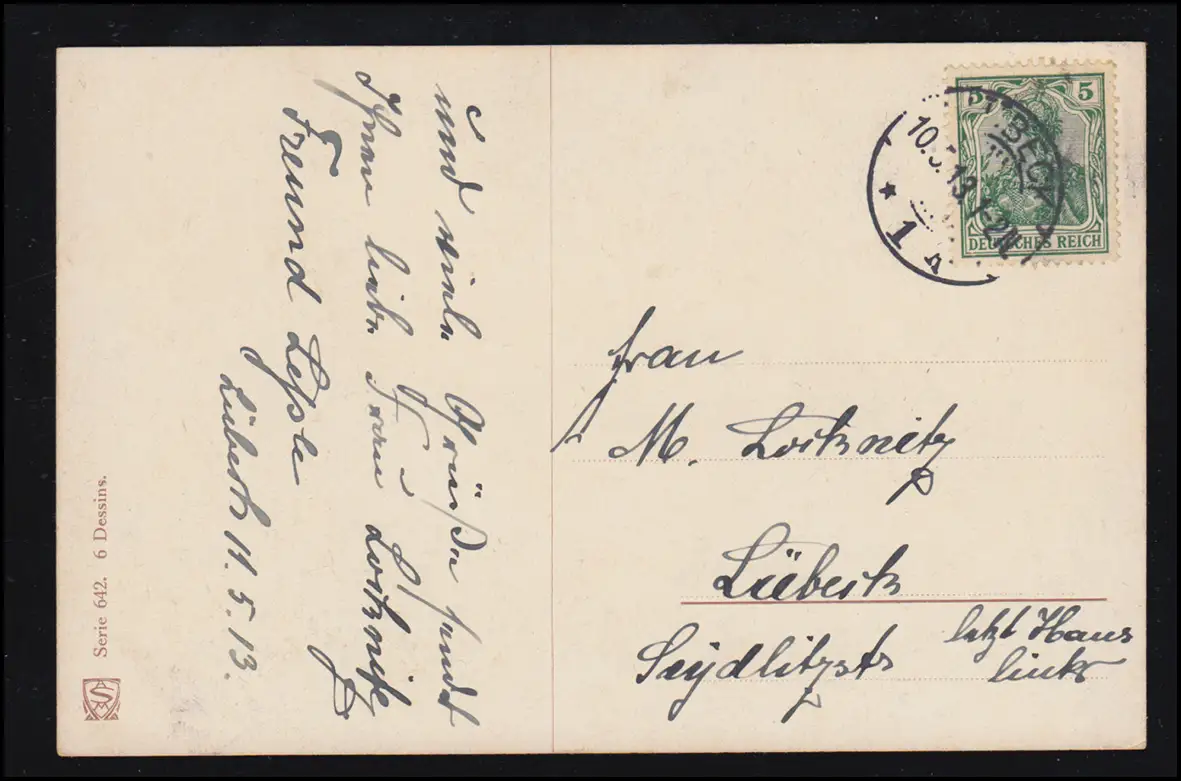 und viele Grüße sendet
Ihnen liebe Frau Loitznitz
Freund
Lübeck 11.5.13.
Serie 642. 6 Dessins.
5 5
DEUTSCHES REICH
BECK
10. 13. 1-2N.
* 1
Frau
M. Loitznitz
Lübeck
Seydlitzstr
letzt Haus
links